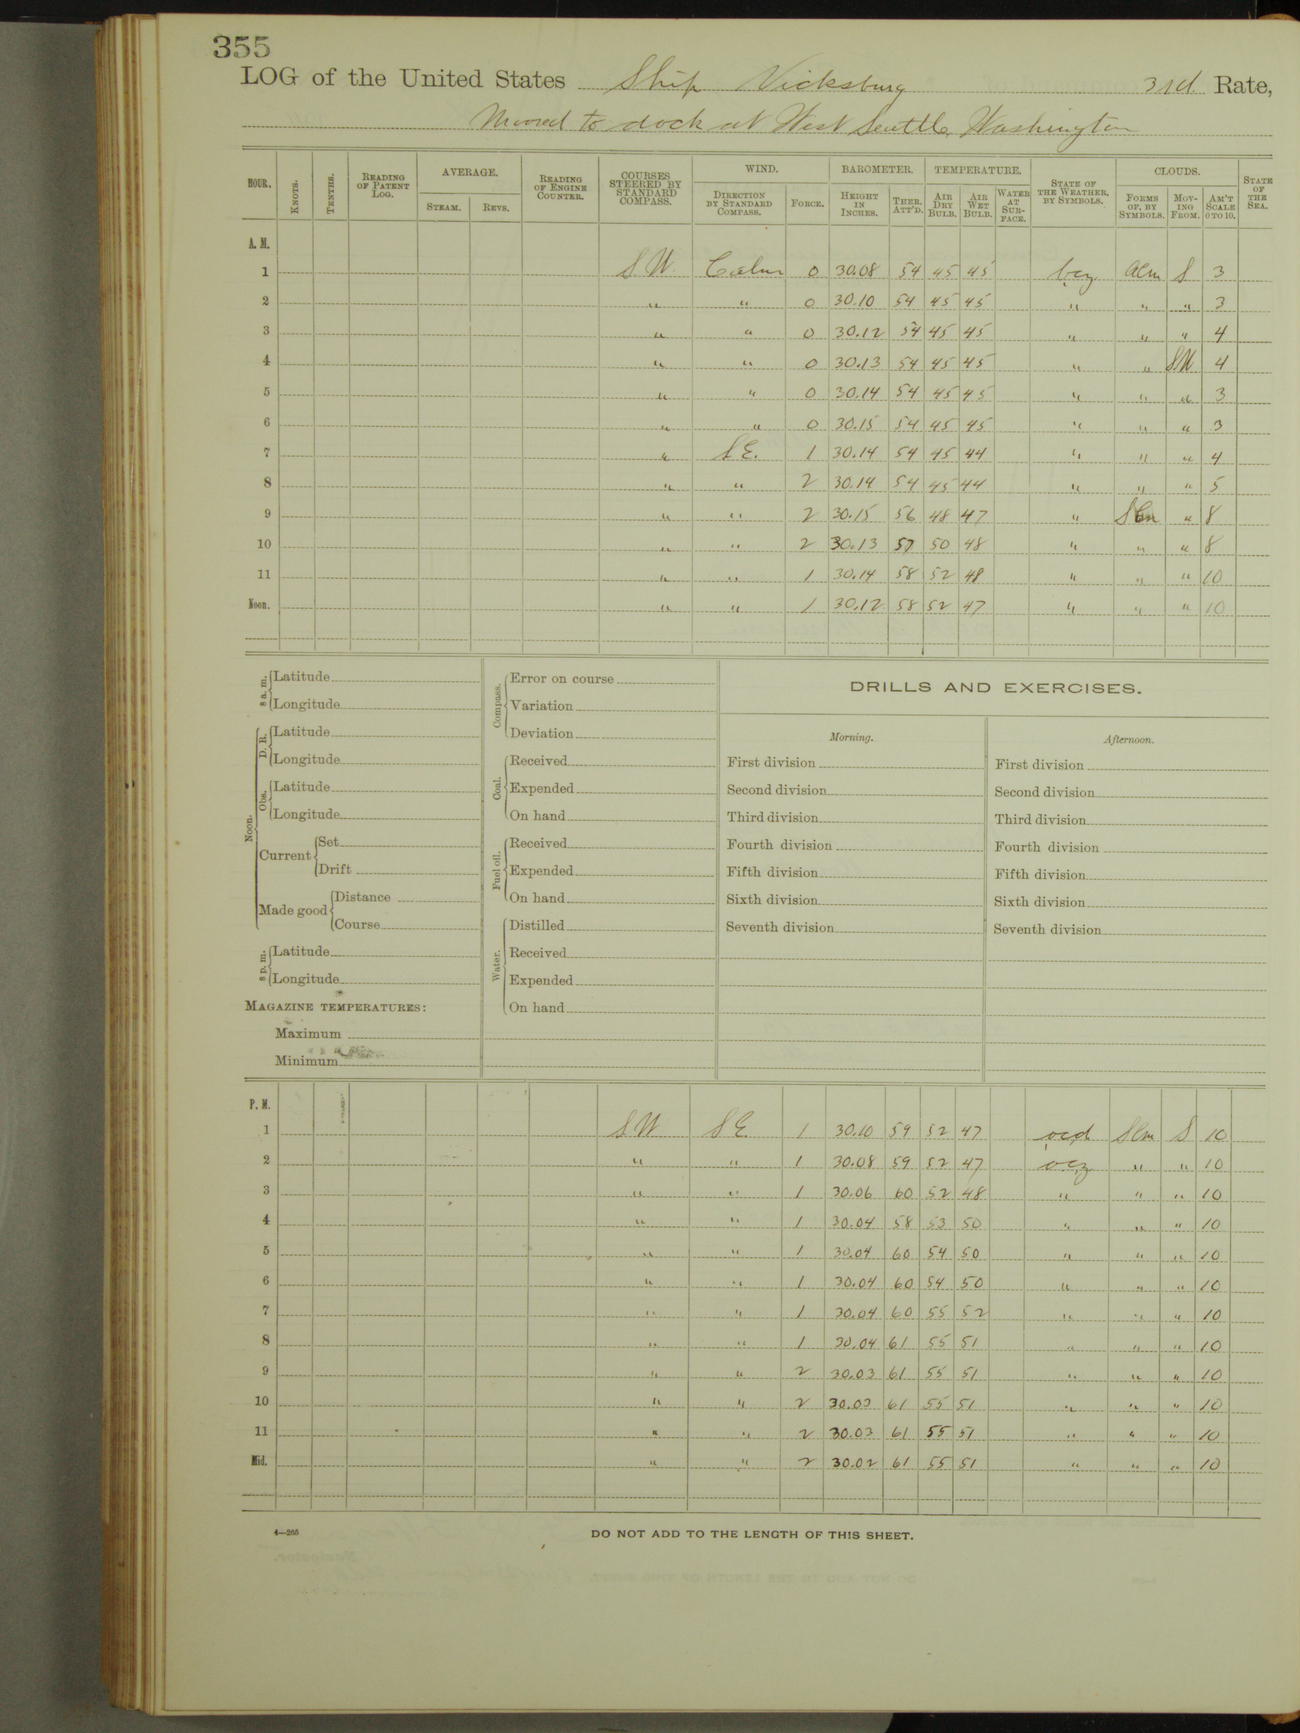 355
LOG of the United States Ship Vicksburg 3rd Rate,
Moored to dock at West Seattle, Washington
HOUR. KNOTS. TENTHS. READING OF PATENT LOG. AVERAGE. STEAM. REVS. READING OF ENGINE COUNTER. COURSES STEERED BY STANDARD COMPASS. WIND. DIRECTION BY STANDARD COMPASS. FORCE. BAROMETER. HEIGHT IN INCHES. THER. ATT'D. TEMPERATURE. AIR DRY BULB. AIR WET BULB. WATER AT SURFACE. STATE OF THE WEATHER, BY SYMBOLS. CLOUDS. FORMS OF, BY SYMBOLS. MOVING FROM. AM'T SCALE 0 TO 10. STATE OF THE SEA.
A. M.
1 SW Calm 0 30.08 54 45 45 bcz ACu S 3
2 " " 0 30.10 54 45 45 " " " 3
3 " " 0 30.12 54 45 45 " " " 4
4 " " 0 30.13 54 45 45 " " SW 4
5 " " 0 30.14 54 45 45 " " " 3
6 " " 0 30.15 54 45 45 " " " 3
7 " SE. 1 30.14 54 45 44 " " " 4
8 " " 2 30.14 54 45 44 " " " 5
9 " " 2 30.15 56 48 47 " SCu " 8
10 " " 2 30.13 57 50 48 " " " 8
11 " " 1 30.14 58 52 48 " " " 10
Noon. " " 1 30.12 58 52 47 " " " 10
8 a. m. Latitude
Longitude
Noon. D. R. Latitude
Longitude
Obs. Latitude
Longitude
Current Set
Drift
Made good Distance
Course
8 p. m. Latitude
Longitude
MAGAZINE TEMPERATURES:
Maximum
Minimum
Compass. Error on course
Variation
Deviation
Coal. Received
Expended
On hand
Fuel oil. Received
Expended
On hand
Water. Distilled
Received
Expended
On hand
DRILLS AND EXERCISES.
Morning.
First division
Second division
Third division
Fourth division
Fifth division
Sixth division
Seventh division
Afternoon.
First division
Second division
Third division
Fourth division
Fifth division
Sixth division
Seventh division
P. M.
1 SW SE 1 30.10 59 52 47 ocd SCu S 10
2 " " 1 30.08 59 52 47 ocz " " 10
3 " " 1 30.06 60 52 48 " " " 10
4 " " 1 30.04 58 53 50 " " " 10
5 " " 1 30.04 60 54 50 " " " 10
6 " " 1 30.04 60 54 50 " " " 10
7 " " 1 30.04 60 55 52 " " " 10
8 " " 1 30.04 61 55 51 " " " 10
9 " " 2 30.03 61 55 51 " " " 10
10 " " 2 30.03 61 55 51 " " " 10
11 " " 2 30.03 61 55 51 " " " 10
Mid. " " 2 30.02 61 55 51 " " " 10
4—265
DO NOT ADD TO THE LENGTH OF THIS SHEET.